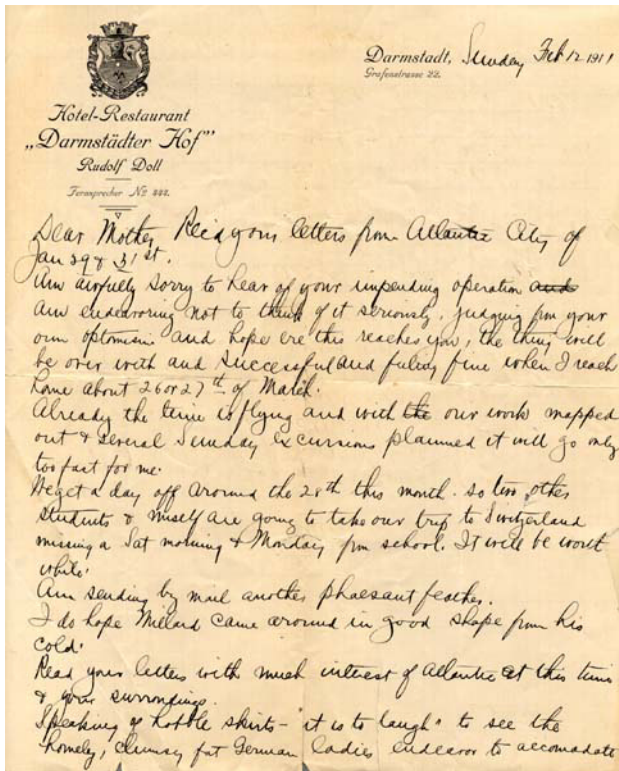 Hotel-Restaurant
„Darmstädter Hof"
Rudolf Doll
Fernsprecher No 222.
Darmstadt, Sunday Feb 12 1911
Grafenstrasse 22.
Dear Mother Recd your letters from Atlantic City of
Jan 29 & 31st.
Am awfuely sorry to hear of your impending operation and
am endeavoring not to think of it seriously, judging from your
own optomism and hope ere this reaches you, the thing will
be over with and successful and feeling fine when I reach
home about 26 or 27th of March.
Already the time is flying and with the our work mapped
out & several Sunday excursions planned it will go only
too fast for me.
We get a day off around the 28th this month. so two other
students & miself are going to take our trip to Switzerland
missing a Sat morning & Monday from school. It will be worth
while.
Am sending by mail another phaesant feather.
I do hope Millard came around in good shape from his
cold.
Read your letters with much interest of Atlantic at this time
& your surrondings.
Speaking of hobble skirts - "it is to laugh" to see the
homely, clumsy fat German ladies endeavor to accomadate